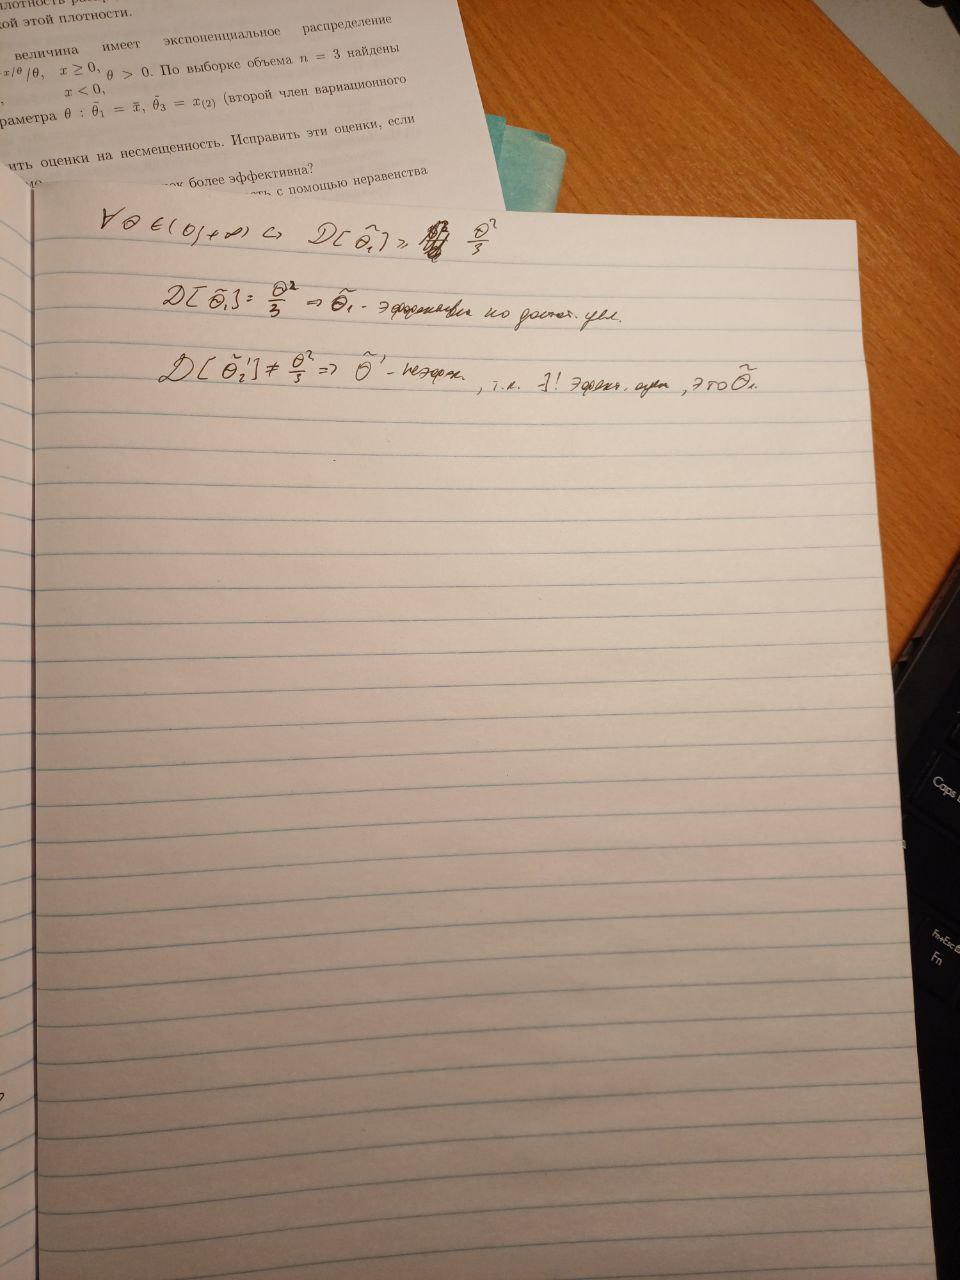 кой этой плотности.
величина имеет экспоненциальное распределение
x/θ/θ, x ≥ 0,
x < 0, θ > 0. По выборке объема n = 3 найдены
раметра θ : θ̃₁ = x̄, θ̃₃ = x₍₂₎ (второй член вариационного
ить оценки на несмещенность. Исправить эти оценки, если
более эффективна?
с помощью неравенства
∀ θ ∈ (0; +∞) ↪ D[θ̃₁] ≥ θ²/3
D[θ̃₁] = θ²/3 ⇒ θ̃₁ - эффективна по достат. усл.
D[θ̃₂'] ≠ θ²/3 ⇒ θ̃' - неэфф. , т.к. ∃! эффект. оцен , это θ̃₁.
Caps
Fn+Esc
Fn